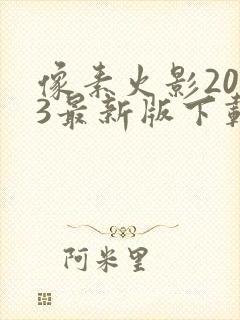 像素火影20
3最新版下载
阿米里